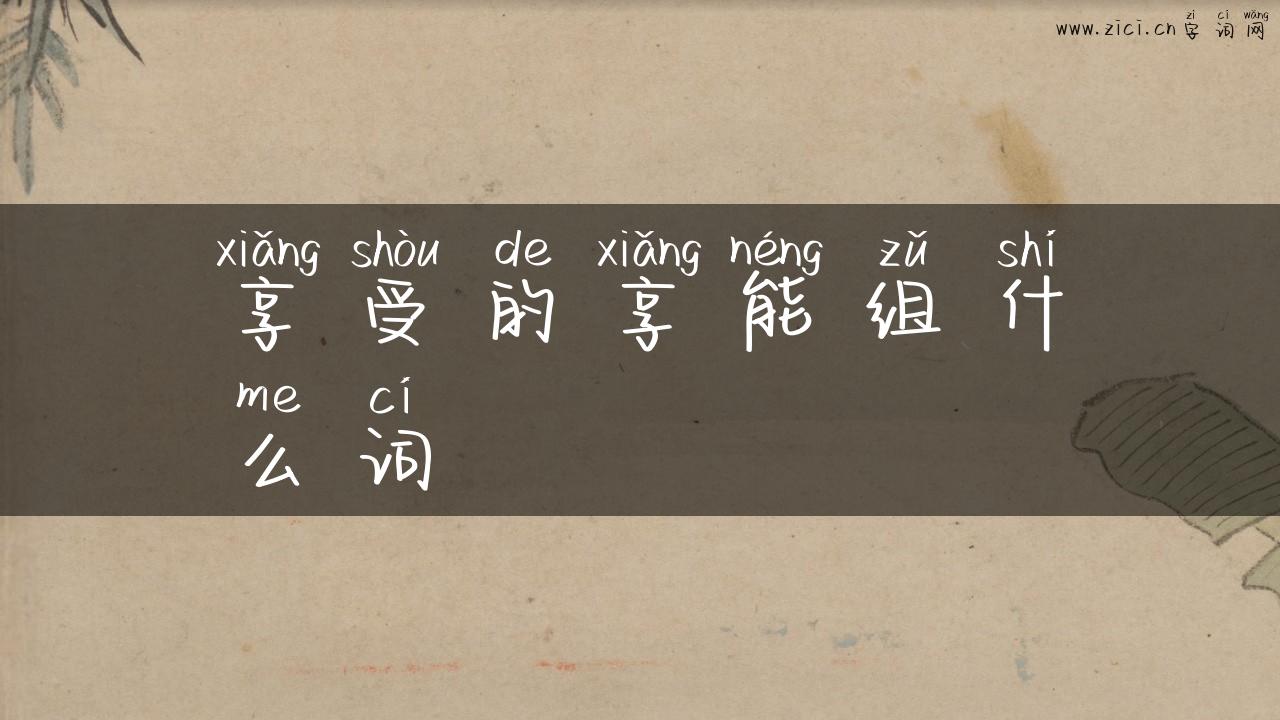 zì cí wǎng
www.zici.cn 字词网
xiǎng shòu de xiǎng néng zǔ shí
享受的享能组什
me cí
么词